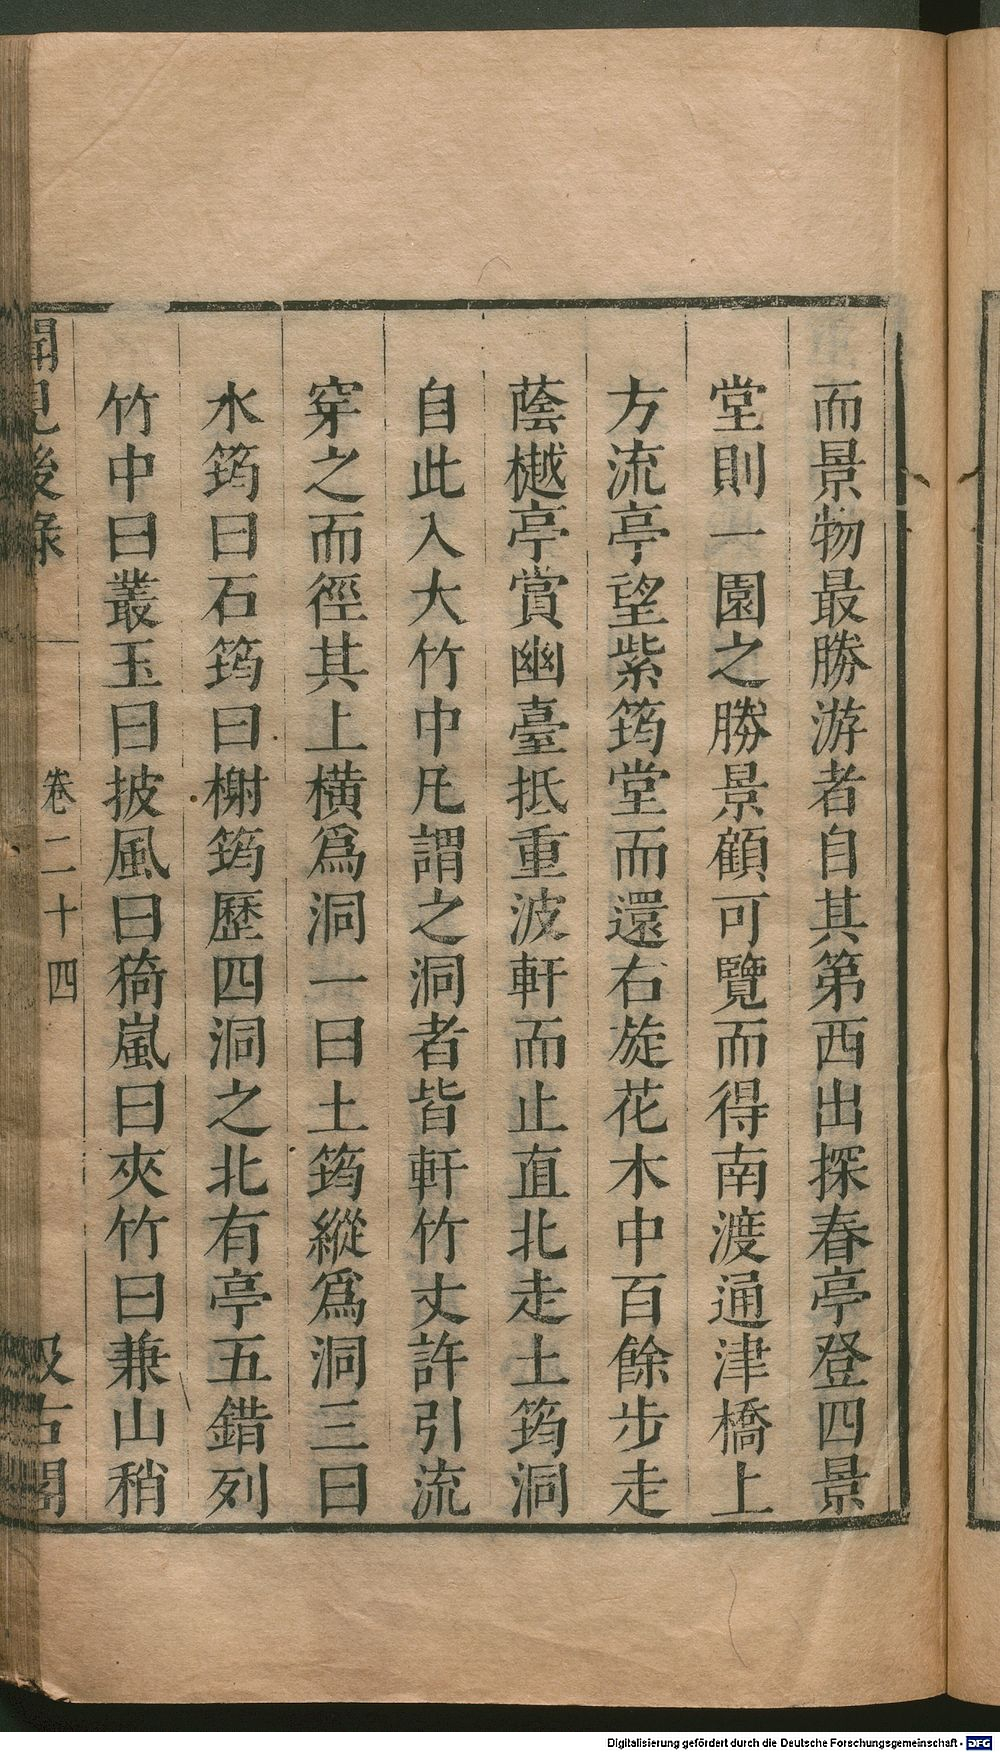 而景物最勝游者自其第西出探春亭登四景
堂則一園之勝景顧可覽而得南渡通津橋上
方流亭望紫筠堂而還右旋花木中百餘步走
蔭樾亭賞幽臺抵重波軒而止直北走土筠洞
自此入大竹中凡謂之洞者皆軒竹丈許引流
穿之而徑其上橫爲洞一曰土筠縱爲洞三曰
水筠曰石筠曰榭筠歷四洞之北有亭五錯列
竹中曰叢玉曰披風曰猗嵐曰夾竹曰兼山稍
聞見後錄 卷二十四 汲古閣
Digitalisierung gefördert durch die Deutsche Forschungsgemeinschaft - DFG